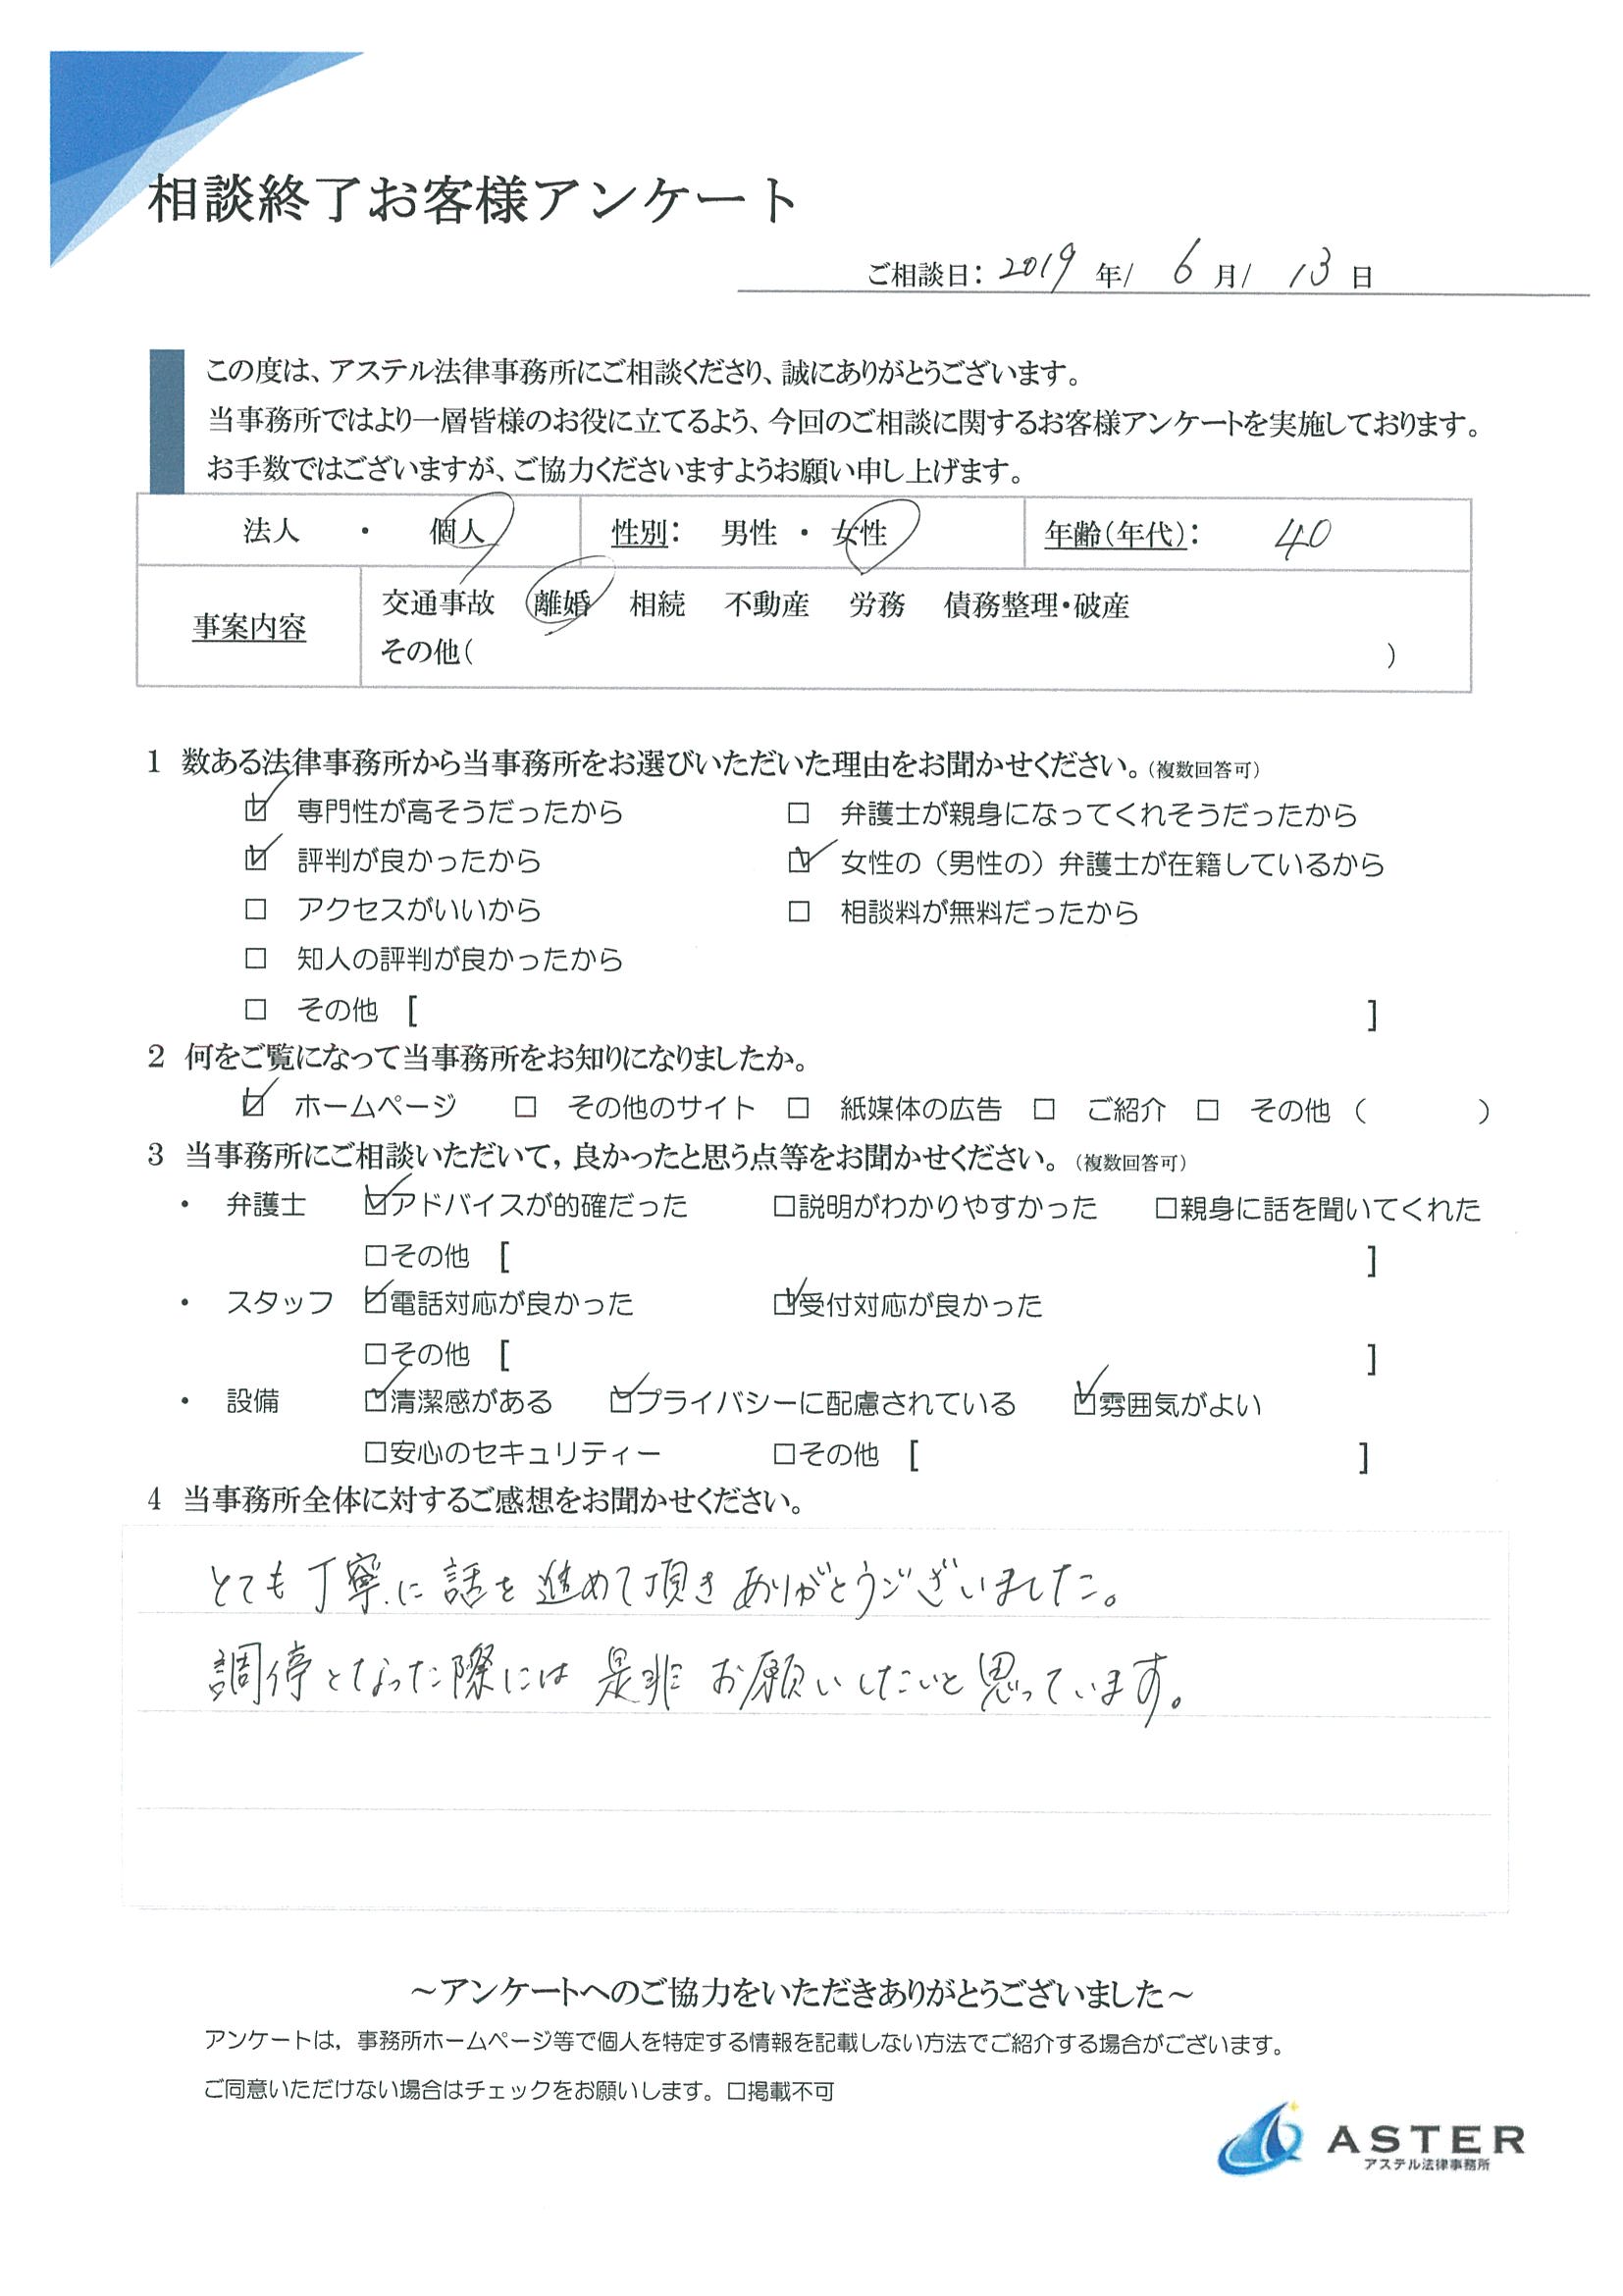 相談終了お客様アンケート
ご相談日： 2019 年/ 6 月/ 13 日
この度は、アステル法律事務所にご相談くださり、誠にありがとうございます。
当事務所ではより一層皆様のお役に立てるよう、今回のご相談に関するお客様アンケートを実施しております。
お手数ではございますが、ご協力くださいますようお願い申し上げます。
法人 ・ 個人 性別： 男性 ・ 女性 年齢（年代）： 40
事案内容 交通事故 離婚 相続 不動産 労務 債務整理・破産
その他（ ）
1 数ある法律事務所から当事務所をお選びいただいた理由をお聞かせください。（複数回答可）
☑ 専門性が高そうだったから □ 弁護士が親身になってくれそうだったから
☑ 評判が良かったから ☑ 女性の（男性の）弁護士が在籍しているから
□ アクセスがいいから □ 相談料が無料だったから
□ 知人の評判が良かったから
□ その他 [ ]
2 何をご覧になって当事務所をお知りになりましたか。
☑ ホームページ □ その他のサイト □ 紙媒体の広告 □ ご紹介 □ その他 （ ）
3 当事務所にご相談いただいて，良かったと思う点等をお聞かせください。（複数回答可）
・ 弁護士 ☑アドバイスが的確だった □説明がわかりやすかった □親身に話を聞いてくれた
□その他 [ ]
・ スタッフ ☑電話対応が良かった ☑受付対応が良かった
□その他 [ ]
・ 設備 ☑清潔感がある ☑プライバシーに配慮されている ☑雰囲気がよい
□安心のセキュリティー □その他 [ ]
4 当事務所全体に対するご感想をお聞かせください。
とても丁寧に話を進めて頂きありがとうございました。
調停となった際には是非お願いしたいと思っています。
～アンケートへのご協力をいただきありがとうございました～
アンケートは，事務所ホームページ等で個人を特定する情報を記載しない方法でご紹介する場合がございます。
ご同意いただけない場合はチェックをお願いします。□掲載不可
ASTER
アステル法律事務所